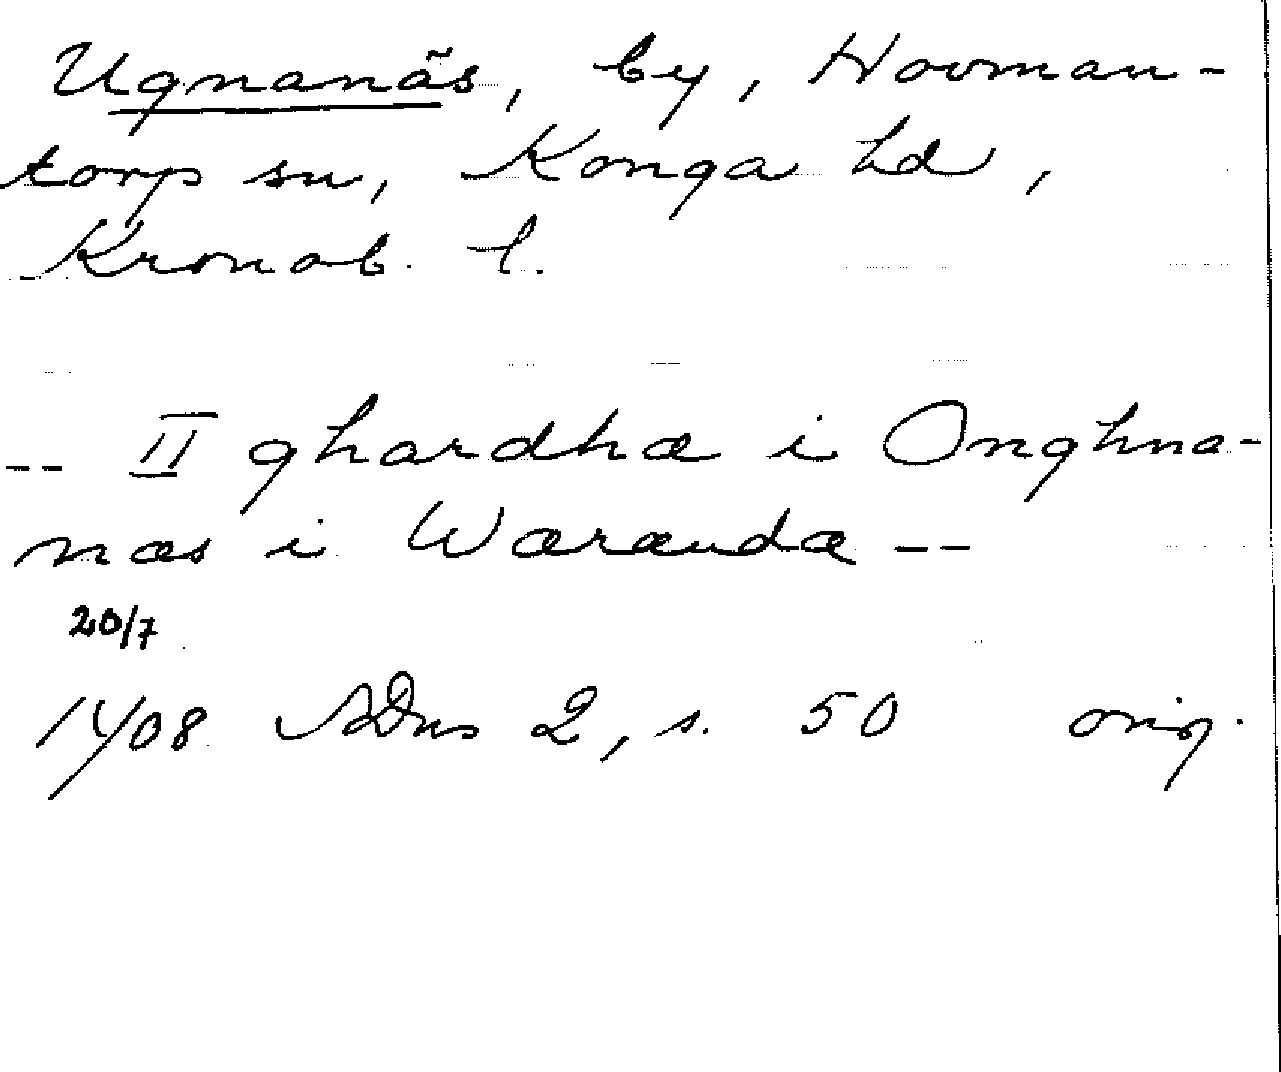 Ugnanäs, by, Hovman-
torp sn, Konga hd,
Kronob. l.
-- II ghardha i Onghna-
næs i Wærændæ --
20/7
1408 SDns 2, s. 50 orig.